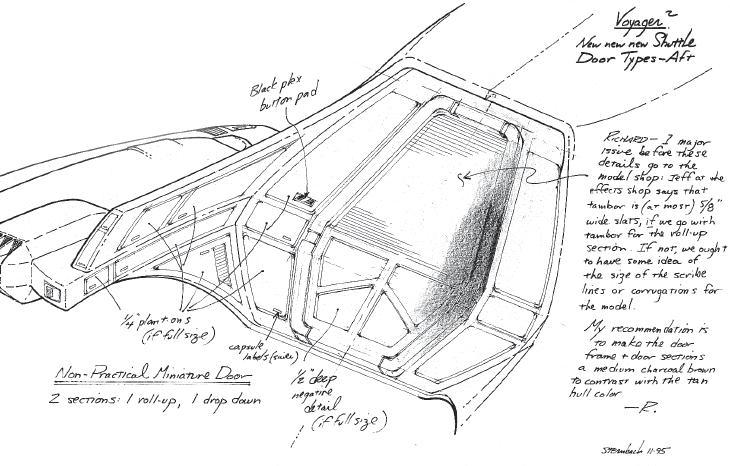 Voyager²
New new new Shuttle
Door Types-Aft
Black plex
button pad
RICHARD— 1 major
issue before these
details go to the
model shop: Jeff at the
effects shop says that
tambor is (at most) 5/8"
wide slats, if we go with
tambor for the roll-up
section. If not, we ought
to have some idea of
the size of the scribe
lines or corrugations for
the model.
My recommendation is
to make the door
frame + door sections
a medium charcoal brown
to contrast with the tan
hull color.
—R.
1/4" plantons
(if full size)
capsule
labels (series)
1/2" deep
negative
detail
(if full size)
Non-Practical Miniature Door
2 sections: 1 roll-up, 1 drop down
STERNBACH 11·95